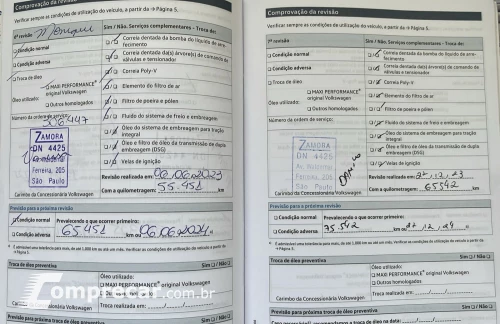 Comprovação da revisão
Verificar sempre as condições de utilização do veículo, a partir da → Página 5.
6ª revisão
Condição normal
Condição adversa
Troca de óleo
MAXI PERFORMANCE® original Volkswagen
Óleo utilizado:
Outros homologados
Número da ordem de serviço:
206447
ZAMORA
DN 4425
Ferreira, 205
São Paulo
Carimbo da Concessionária Volkswagen
Sim / Não. Serviços complementares - Troca de:
Correia dentada da bomba do líquido de arrefecimento
Correia dentada da(s) árvore(s) do comando de válvulas e tensionador
Correia Poly-V
Elemento do filtro de ar
Filtro de poeira e pólen
Fluido do sistema de freio e embreagem
Óleo do sistema de embreagem para tração integral
Óleo e filtro de óleo da transmissão de dupla embreagem (DSG)
Velas de ignição
Revisão realizada em: 06.06.2023
Com a quilometragem: 55.451 km
Previsão para a próxima revisão
Condição normal
Condição adversa
Prevalecendo o que ocorrer primeiro:
65451 km ou 06.06.2024
Troca de óleo preventiva
Sim / Não
Óleo utilizado:
MAXI PERFORMANCE® original Volkswagen
Outros homologados
Troca realizada em:
Carimbo da Concessionária Volkswagen
Previsão para próxima troca de óleo preventiva
Comprecar.com.br
Comprovação da revisão
Verificar sempre as condições de utilização do veículo, a partir da → Página 5.
7ª revisão
Condição normal
Condição adversa
Troca de óleo
MAXI PERFORMANCE® original Volkswagen
Óleo utilizado:
Outros homologados
Número da ordem de serviço:
ZAMORA
DN 4425
Ferreira, 205
São Paulo
Carimbo da Concessionária Volkswagen
Sim / Não. Serviços complementares - Troca de:
Correia dentada da bomba do líquido de arrefecimento
Correia dentada da(s) árvore(s) do comando de válvulas e tensionador
Correia Poly-V
Elemento do filtro de ar
Filtro de poeira e pólen
Fluido do sistema de freio e embreagem
Óleo do sistema de embreagem para tração integral
Óleo e filtro de óleo da transmissão de dupla embreagem (DSG)
Velas de ignição
Revisão realizada em: 27.12.23
Com a quilometragem: 65542 km
Previsão para a próxima revisão
Condição normal
Condição adversa
Prevalecendo o que ocorrer primeiro:
75.542 km ou 27.12.24
Troca de óleo preventiva
Sim / Não
Óleo utilizado:
MAXI PERFORMANCE® original Volkswagen
Outros homologados
Troca realizada em:
Carimbo da Concessionária Volkswagen
Previsão para próxima troca de óleo preventiva